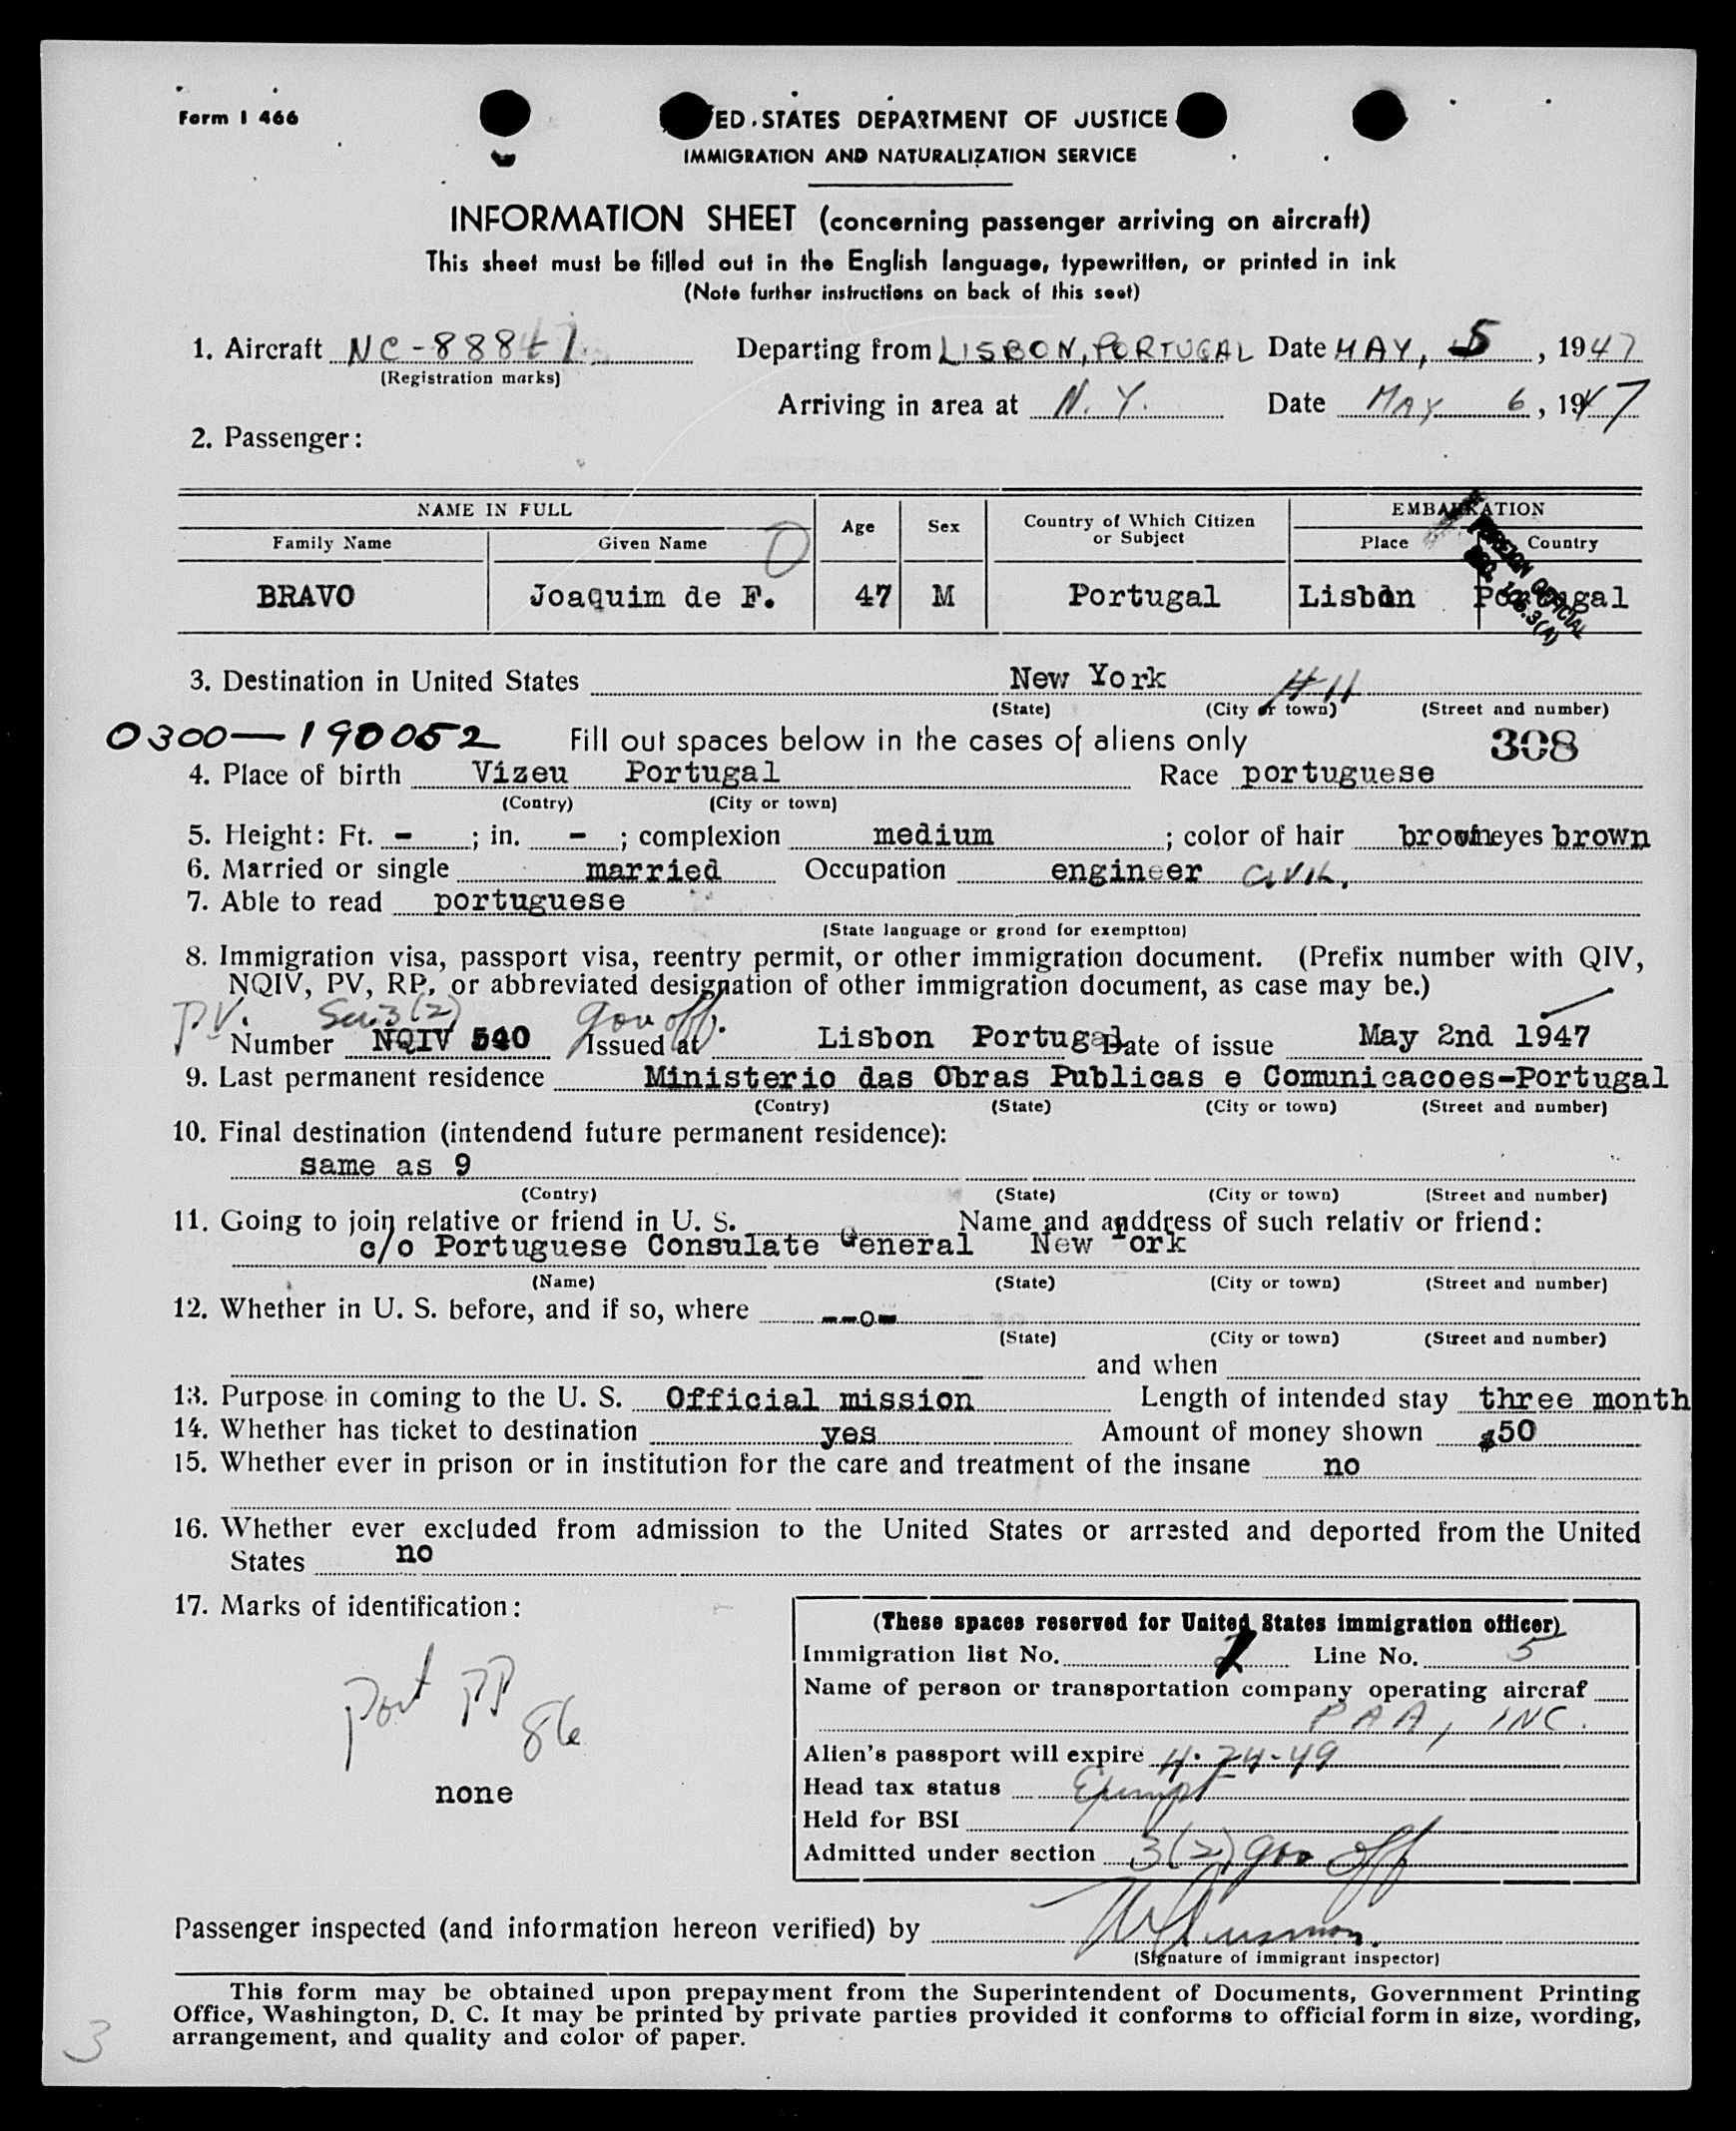 Form I 466
ED. STATES DEPARTMENT OF JUSTICE
IMMIGRATION AND NATURALIZATION SERVICE
INFORMATION SHEET (concerning passenger arriving on aircraft)
This sheet must be filled out in the English language, typewritten, or printed in ink
(Note further instructions on back of this seet)
1. Aircraft NC-88847 Departing from LISBON, PORTUGAL Date MAY, 5, 1947
(Registration marks)
Arriving in area at N. Y. Date MAY 6, 1947
2. Passenger:
NAME IN FULL Age Sex Country of Which Citizen or Subject EMBARKATION
Family Name Given Name Place Country
O
BRAVO Joaquim de F. 47 M Portugal Lisbon Portugal
FOREIGN OFFICIAL
SEC. 126.3(A)
3. Destination in United States New York
(State) (City or town) (Street and number)
0300-190052 Fill out spaces below in the cases of aliens only 308
4. Place of birth Vizeu Portugal Race portuguese
(Contry) (City or town)
5. Height: Ft. - ; in. - ; complexion medium ; color of hair brown eyes brown
6. Married or single married Occupation engineer CIVIL.
7. Able to read portuguese
(State language or grond for exemptton)
8. Immigration visa, passport visa, reentry permit, or other immigration document. (Prefix number with QIV,
NQIV, PV, RP, or abbreviated designation of other immigration document, as case may be.)
P.V. Sec. 3(2) gov off.
Number NQIV 540 Issued at Lisbon Portugal Date of issue May 2nd 1947
9. Last permanent residence Ministerio das Obras Publicas e Comunicacoes-Portugal
(Contry) (State) (City or town) (Street and number)
10. Final destination (intendend future permanent residence):
same as 9
(Contry) (State) (City or town) (Street and number)
11. Going to join relative or friend in U. S. Name and anddress of such relativ or friend:
c/o Portuguese Consulate General New York
(Name) (State) (City or town) (Street and number)
12. Whether in U. S. before, and if so, where --o-
(State) (City or town) (Street and number)
and when
13. Purpose in coming to the U. S. Official mission Length of intended stay three month
14. Whether has ticket to destination yes Amount of money shown $50
15. Whether ever in prison or in institution for the care and treatment of the insane no
16. Whether ever excluded from admission to the United States or arrested and deported from the United
States no
17. Marks of identification:
Port PP 86
none
(These spaces reserved for United States immigration officer)
Immigration list No. 2 Line No. 5
Name of person or transportation company operating aircraf
PAA, INC.
Alien's passport will expire 4-24-49
Head tax status Exempt
Held for BSI
Admitted under section 3(2) gov off
Passenger inspected (and information hereon verified) by
(Signature of immigrant inspector)
This form may be obtained upon prepayment from the Superintendent of Documents, Government Printing
Office, Washington, D. C. It may be printed by private parties provided it conforms to official form in size, wording,
arrangement, and quality and color of paper.
3